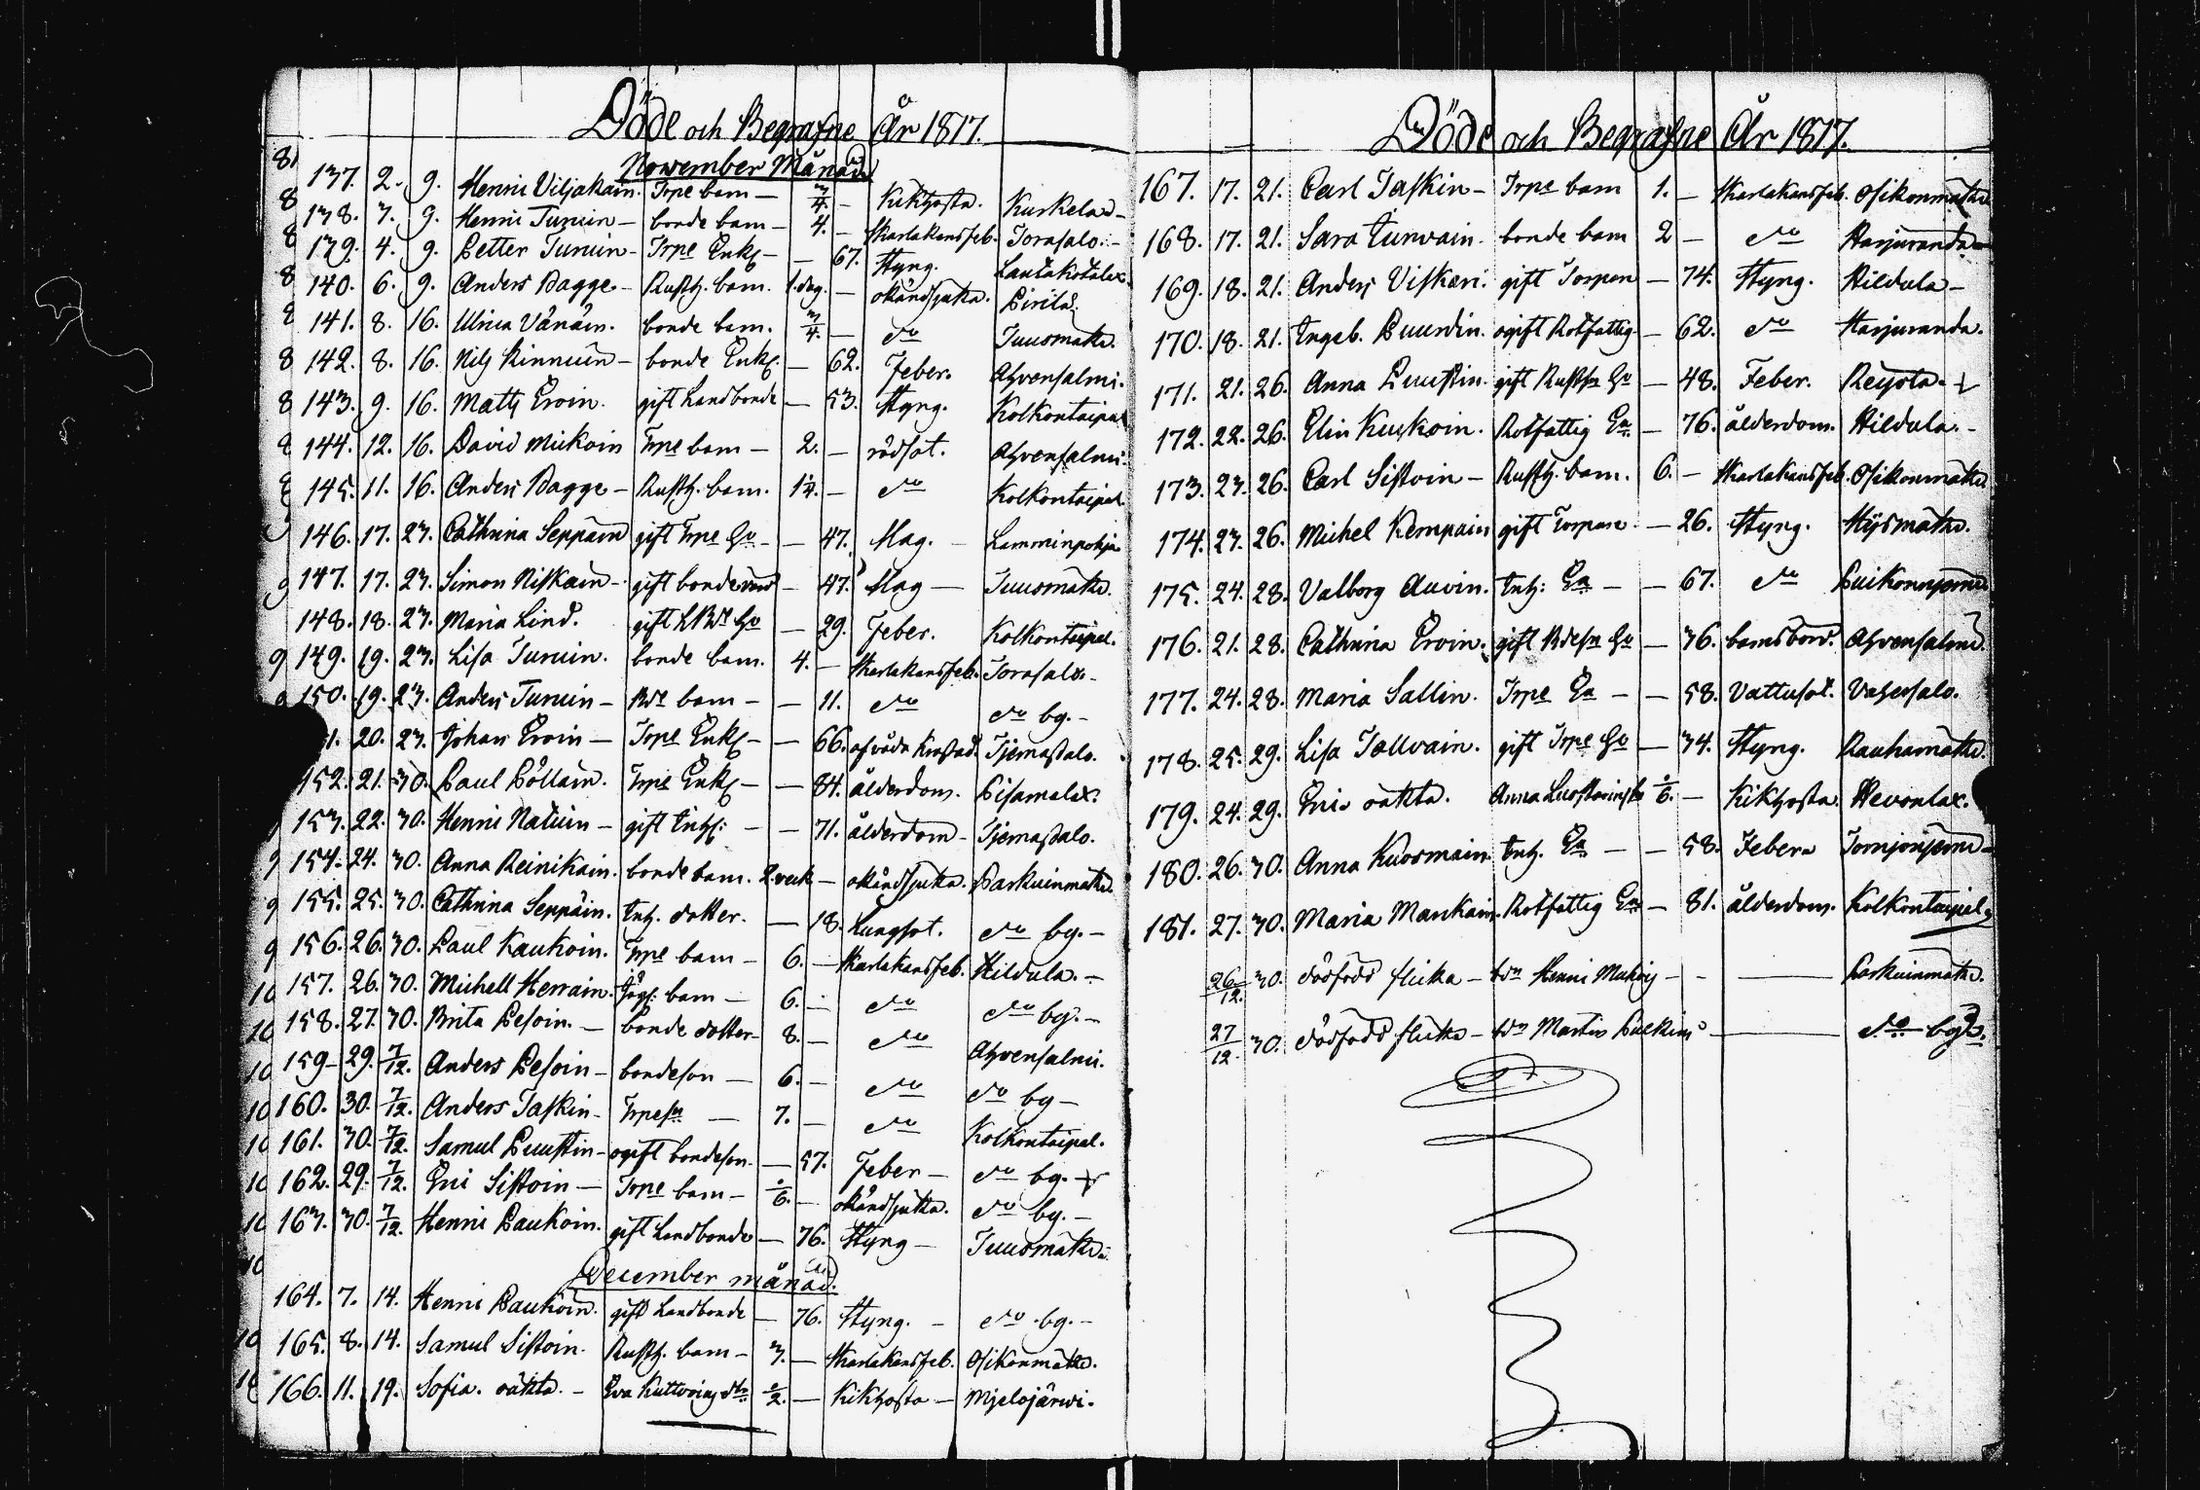 Döde och Begrafne År 1817.
November Månad
137. 2. 9. Henric Viljakain. Trpe barn — 3/4. — Kikhosta. Kuskela —
138. 3. 9. Henric Turuin — bonde barn — 4. — Skarlakansfeb. Torasalo. —
139. 4. 9. Petter Turuin — Trpe Enkl — — 67. Styng. Lautakotalax.
140. 6. 9. Anders Bagge — Rusth. barn. 1. dag. — okänd sjukd. Pirilä.
141. 8. 16. Ulrica Vänäin. bonde barn. 3/4. — do Juuomäki.
142. 8. 16. Nils Kinnuin — bonde Enkl. — 62. Feber. Ahvensalmi.
143. 9. 16. Matts Eroin. gift Landbonde — 53. Styng. Kolkontaipal
144. 12. 16. David Mickoin Trpe barn — 2. — rödsot. Ahvensalmi.
145. 11. 16. Anders Bagge — Rusth. barn. 1 1/4. — do Kolkontaipal
146. 17. 23. Cathrina Seppäin gift Trpe Hu — — 47. Slag. — Lamminpohja
147. 17. 23. Simon Niskain — gift bonde — 47. Slag — Juuomäki.
148. 18. 23. Maria Lind. gift Hu — 29. Feber. Kolkontaipal.
149. 19. 23. Lisa Turuin. bonde barn. 4. — Skarlakansfeb. Torasalo. —
150. 19. 23. Anders Turuin — barn — — 11. do do by. —
1. 20. 23. Johan Eroin — Trpe Enkl — — 66. af våda Tjemassalo.
152. 21. 30. Paul Pölläin. Trpe Enkl — — 84. ålderdom. Pisamalax.
153. 22. 30. Henric Natuin — gift Inhs: — — 71. ålderdom — Tjemassalo.
154. 24. 30. Anna Reinikain. bonde barn. 2. veck — okänd sjukd. Paskuinmäki.
155. 25. 30. Cathrina Seppäin. Inh. dotter. — 18. Lungsot. do by. —
156. 26. 30. Paul Kaukoin. Trpe barn — 6. — Skarlakansfeb. Hildula. —
157. 26. 30. Michell Herrain. barn — 6. — do do by. —
158. 27. 30. Brita Pesoin. — bonde dotter — 8. — do Ahvensalmi.
159. 29. 7/12. Anders Pesoin — bondeson — 6. — do do by —
160. 30. 7/12. Anders Taskin — Trpesn — 7. — do Kolkontaipal.
161. 30. 7/12. Samul Puustin — ogift bondeson. — 57. Feber — do by. —
162. 29. 7/12. Eric Sistoin — Trpe barn — 6. — okänd sjukd. do by. —
163. 30. 7/12. Henric Paukoin. gift Landbonde — 76. Styng — Juuomäki.
December månad.
164. 7. 14. Henric Paukoin. gift Landbonde — 76. Styng. — do by. —
165. 8. 14. Samul Sistoin. Rusth. barn — 3. — Skarlakansfeb. Osikonmäki.
166. 11. 19. Sofia. oäkta. — Eva — Kikhosta — Mjelojärwi.
Döde och Begrafne År 1817.
167. 17. 21. Carl Taskin — Trpe barn 1. — Skarlakansfeb. Osikonmäki
168. 17. 21. Sara Turvain. bonde barn 2 — do Harjuranda
169. 18. 21. Anders Viskari. gift Torpare — 74. Styng. Hildula —
170. 18. 21. Ingeb. Puurdin. ogift Rotfattig — 62. do Harjuranda.
171. 21. 26. Anna Puustin. gift Rusth Hu — 48. Feber. Reijola.
172. 22. 26. Elin Kuskoin. Rotfattig Ea. — 76. ålderdom. Hildula. —
173. 23. 26. Carl Sistoin — Rusth. barn. 6. — Skarlakansfeb. Osikonmäki
174. 23. 26. Michel Kempain gift Torpare. — 26. Styng. Hijsmäki.
175. 24. 28. Valborg Auvin. Inh: Ea — — 67. do
176. 21. 28. Cathrina Eroin. gift Hu — 36. barnsbörd. Ahvensalmi.
177. 24. 28. Maria Sallin. Trpe Ea — — 58. Vattusot. Vahersalo.
178. 25. 29. Lisa Tollvain. gift Trpe Hu — 34. Styng. Rauhamäki.
179. 24. 29. Eric oäkta. Anna 6. — Kikhosta. Hevonlax.
180. 26. 30. Anna Kuosmain. Inh. Ea — — 58. Feber
181. 27. 30. Maria Maukain. Rotfattig Ea — 81. ålderdom. Kolkontaipal
26/12. 30. dödfödd flicka — bdn Henric — — Paskuinmäki.
27/12. 30. dödfödd flicka — bdn Martin — do by.